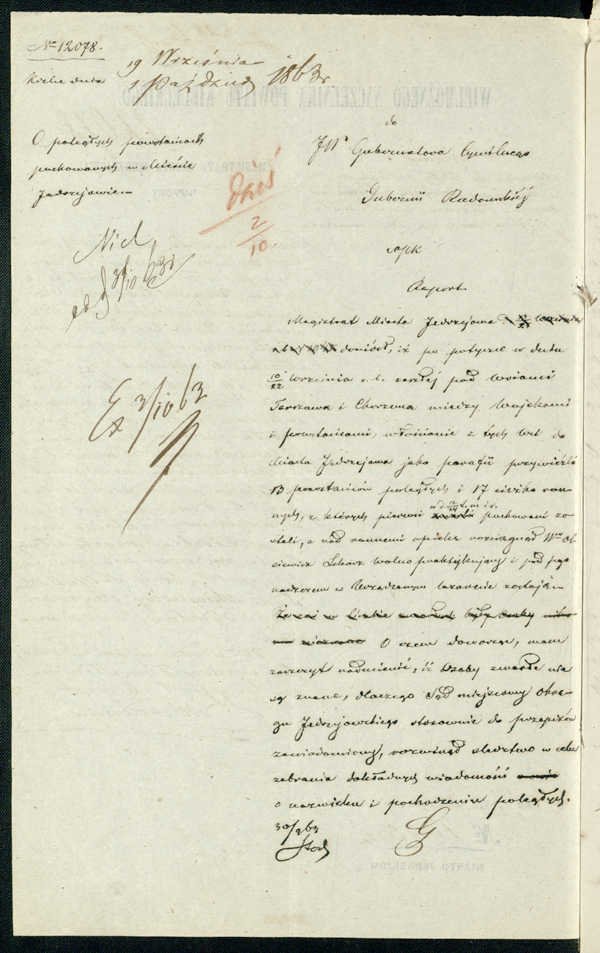 No 12078.
Kielce dnia 19 Września
1 Paździer 1863 r
O poległych powstańcach
pochowanych w Mieście
Jędrzejowie.
do
JW Gubernatora Cywilnego
Gubernii Radomskiéj
Raport
Dziś
2/10
3/10 63
Ex 3/10 63
Magistrat Miasta Jędrzejowa
doniósł, iż po potyczce w dniu
10/22 Września r. b. zaszłej pod wsiami
Terszawa i Chorzewa między Wojskami
i powstańcami, włościanie z tych wsi do
Miasta Jędrzejowa jako parafii przywieźli
13 powstańców poległych i 17 ciężko ran-
nych, z których pierwsi pochowani zo-
stali, a nad rannemi opiekę rozciągnął
Lekarz wolno praktykujący i pod jego
nadzorem w Urządzonym lazarecie zostają.
O czem donosząc, mam
zaszczyt nadmienić, iż Osoby zmarłe nie
są znane, dlaczego Sąd miejscowy Okrę-
gu Jędrzejowskiego stosownie do przepisów
zawiadomiony, rozwinął śledztwo w celu
zebrania dokładnych wiadomości
o nazwisku i pochodzeniu poległych.
30/9 63